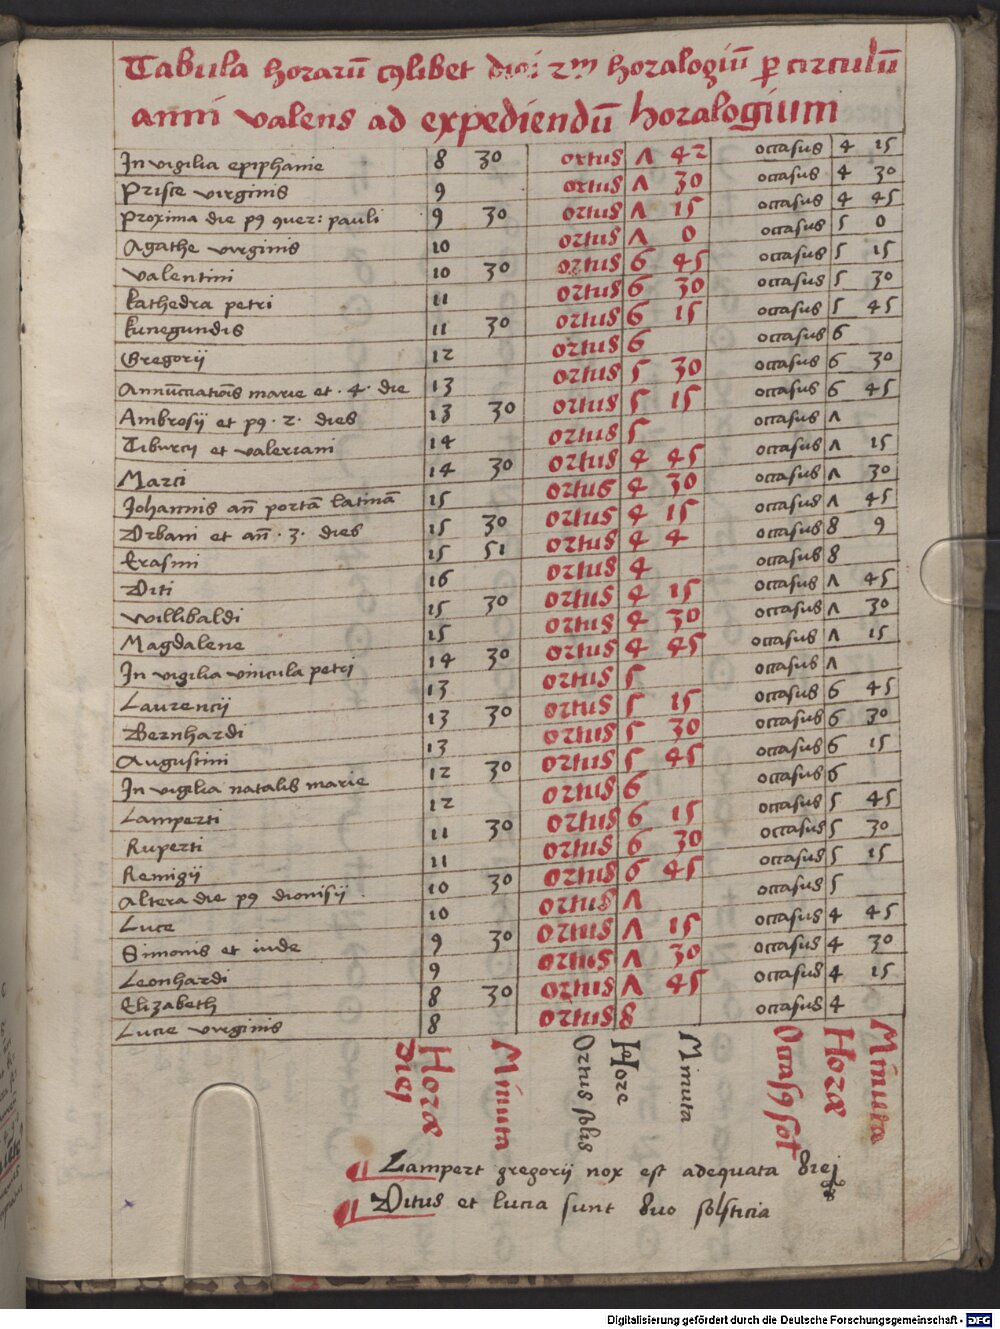 Tabula horarū cuiuslibet diei horalogiū ꝑ circulū
anni valens ad expediendū horalogium
In vigilia epiphanie 8 30 ortus Λ 42 occasus 4 15
Prisce virginis 9 ortus Λ 30 occasus 4 30
Proxima die pꝰ quer: pauli 9 30 ortus Λ 15 occasus 4 45
Agathe virginis 10 ortus Λ 0 occasus 5 0
Valentini 10 30 ortus 6 45 occasus 5 15
kathedra petri 11 ortus 6 30 occasus 5 30
kunegundis 11 30 ortus 6 15 occasus 5 45
Gregorij 12 ortus 6 occasus 6
Annūctiatiōis marie et · 4 · die 13 ortus 5 30 occasus 6 30
Ambrosij et pꝰ · 2 · dies 13 30 ortus 5 15 occasus 6 45
Tiburcij et valeriani 14 ortus 5 occasus Λ
Marci 14 30 ortus 4 45 occasus Λ 15
Johannis añ portā latinā 15 ortus 4 30 occasus Λ 30
Vrbani et añ · 3 · dies 15 30 ortus 4 15 occasus Λ 45
Erasmi 15 51 ortus 4 4 occasus 8 9
Viti 16 ortus 4 occasus 8
Willibaldi 15 30 ortus 4 15 occasus Λ 45
Magdalene 15 ortus 4 30 occasus Λ 30
In vigilia vincula petri 14 30 ortus 4 45 occasus Λ 15
Laurencij 13 ortus 5 occasus Λ
Bernhardi 13 30 ortus 5 15 occasus 6 45
Augustini 13 ortus 5 30 occasus 6 30
In vigilia natalis marie 12 30 ortus 5 45 occasus 6 15
Lamperti 12 ortus 6 occasus 6
Ruperti 11 30 ortus 6 15 occasus 5 45
Remigij 11 ortus 6 30 occasus 5 30
Altera die pꝰ dionisij 10 30 ortus 6 45 occasus 5 15
Luce 10 ortus Λ occasus 5
Simonis et iude 9 30 ortus Λ 15 occasus 4 45
Leonhardi 9 ortus Λ 30 occasus 4 30
Elizabeth 8 30 ortus Λ 45 occasus 4 15
Lucie virginis 8 ortus 8 occasus 4
Horæ Diej
Minuta
Ortus solis
Hore
Minuta
Occasꝰ sol
Horæ
Minuta
Lampert gregorij nox est adequata diej
Vitus et lucia sunt duo solsticia
Digitalisierung gefördert durch die Deutsche Forschungsgemeinschaft - DFG